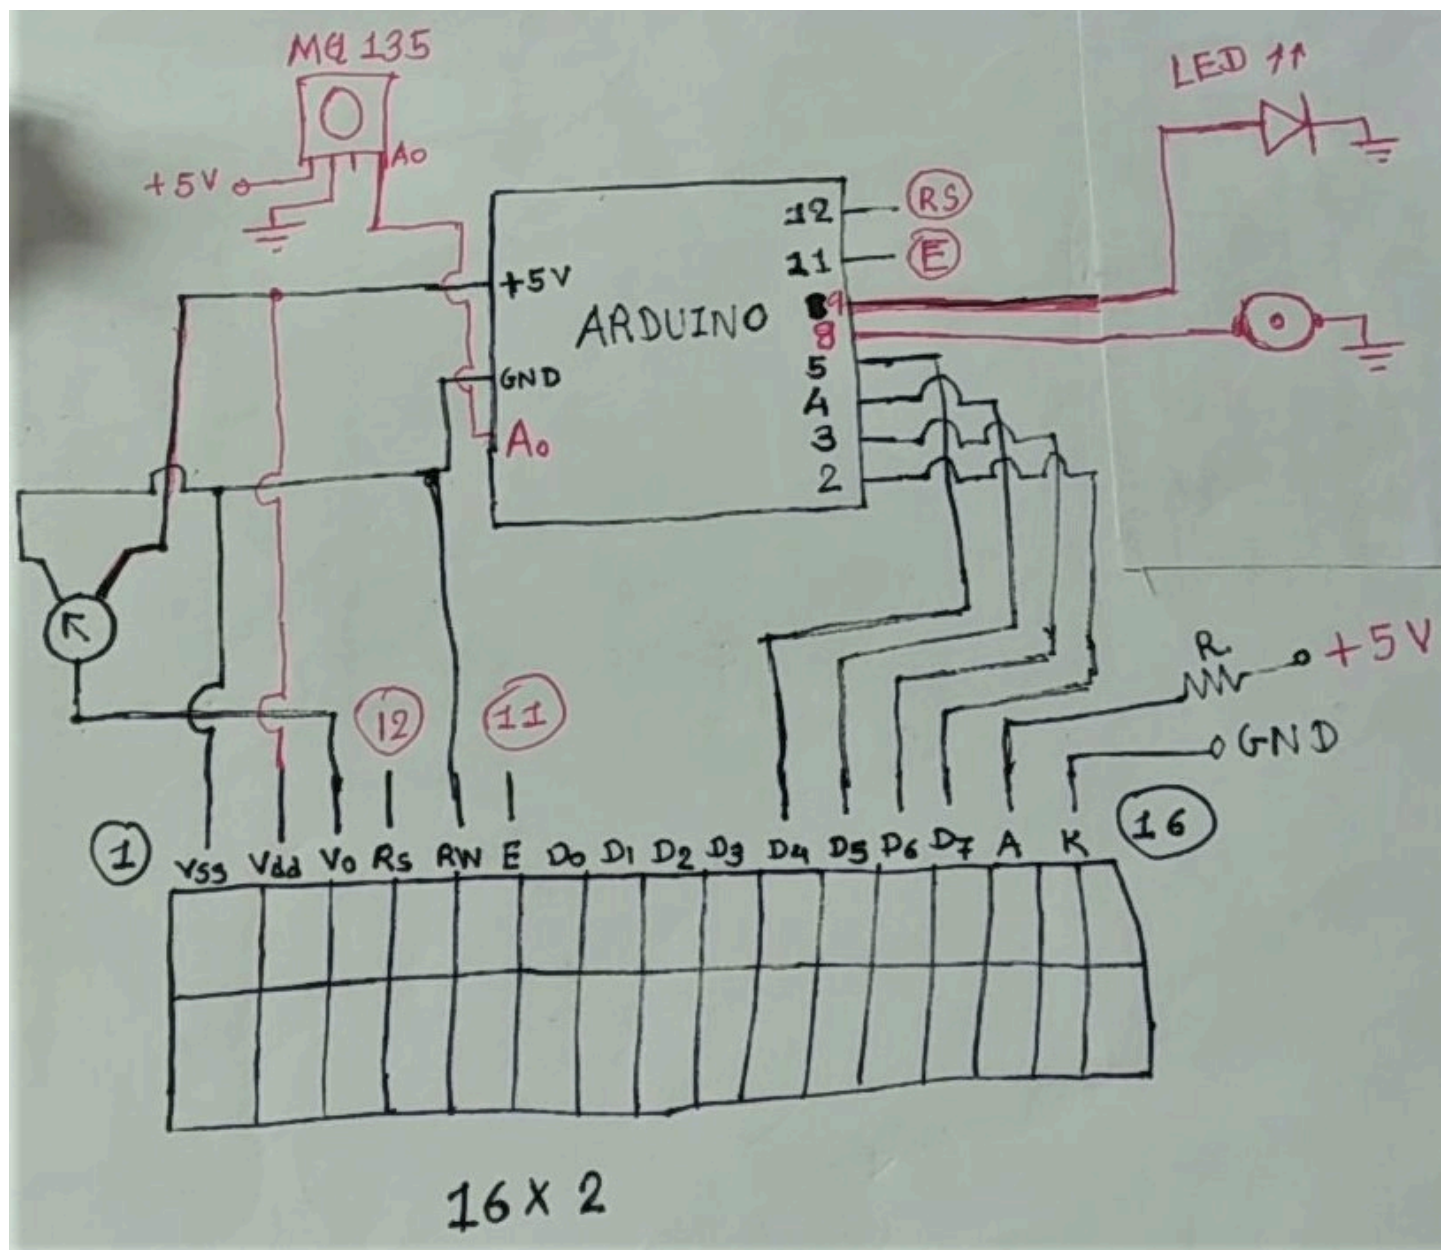 MQ 135
LED
+5V
A0
12
RS
11
E
+5V
ARDUINO
9
8
5
GND
4
A0
3
2
R
+5V
12
11
GND
1
Vss
Vdd
Vo
Rs
RW
E
D0
D1
D2
D3
D4
D5
D6
D7
A
K
16
16 X 2